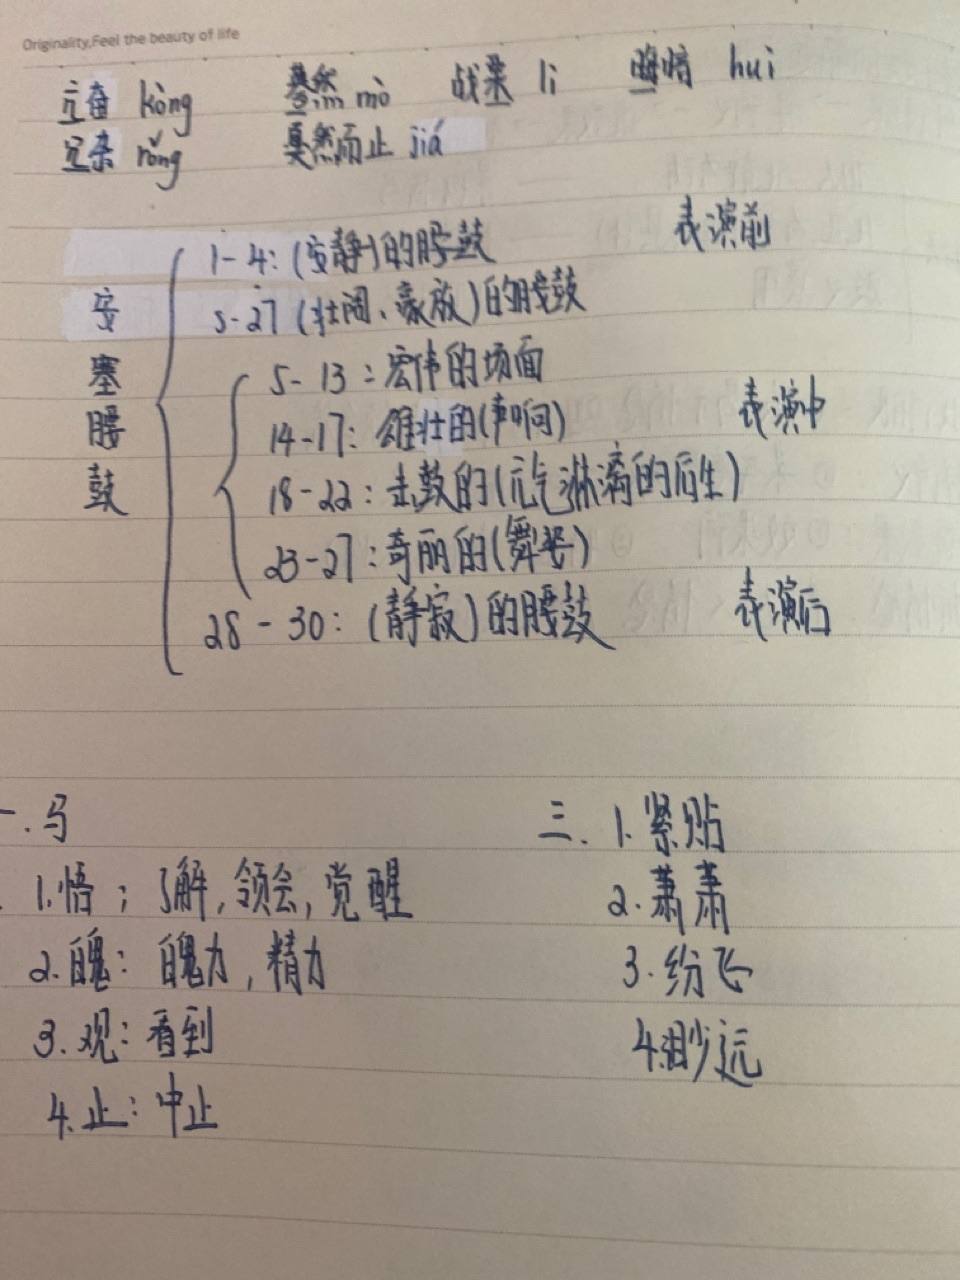 Originality,Feel the beauty of life
亢奋 kòng 蓦然 mò 战栗 lì 晦暗 huì
冗杂 rǒng 戛然而止 jiá
安塞腰鼓
1-4:(安静)的腰鼓 表演前
5-27(壮阔、豪放)的腰鼓
5-13:宏伟的场面
14-17:雄壮的(声响) 表演中
18-22:击鼓的(元气淋漓的后生)
23-27:奇丽的(舞姿)
28-30:(静寂)的腰鼓 表演后
一.
1.悟;了解,领会,觉醒
2.魄:魄力,精力
3.观:看到
4.止:中止
三.1.紧贴
2.萧萧
3.纷飞
4.渺远